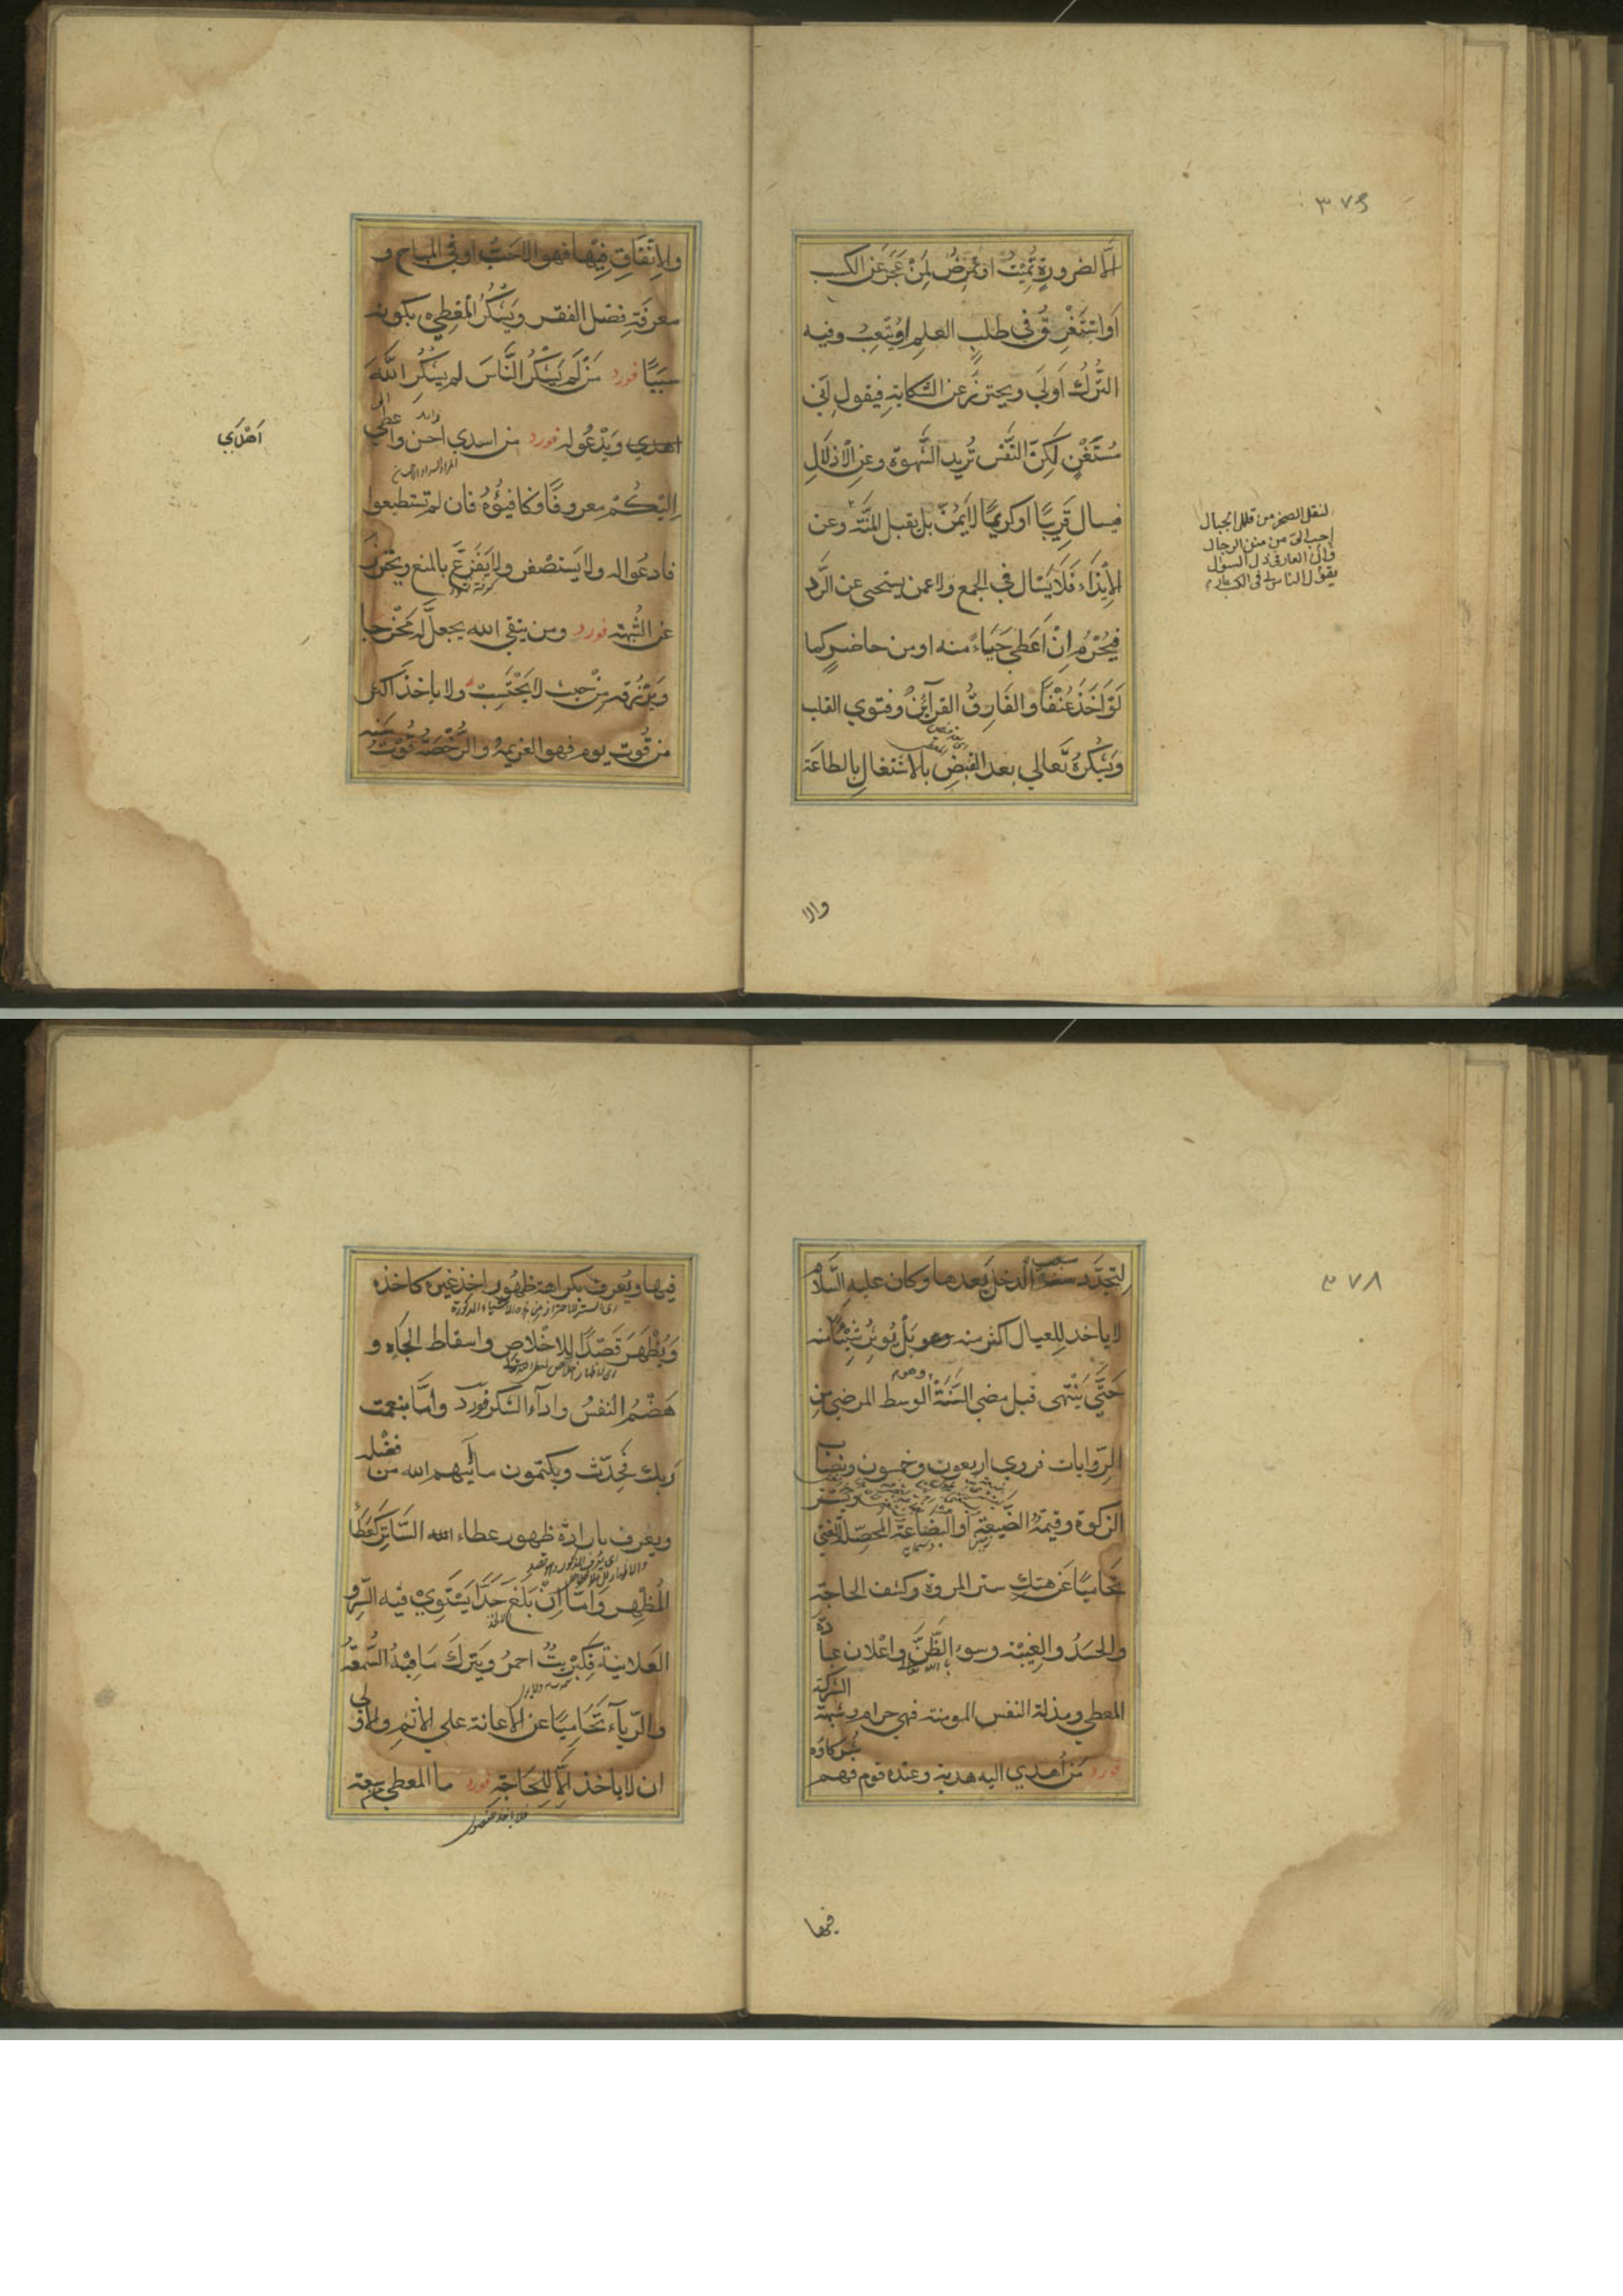 ٣٧٦
الا لضرورة تميت او تمرض لمن عجز عن الكسب
او استغرق في طلب العلم او يتعب وفيه
الترك اولي ويحترز عن الشكاية فيقول اني
مستغن لكن النفس تريد الشهوة وعن الاذلال
فيسال قريبا او كريما لا يمن بل يقبل المنة وعن
الايذاء فلا يسال في الجمع ولا عمن يستحيي عن الرد
فيحرم ان اعطي حياء منه او من حاضر كما
لو اخذ عنفا والفارق القرآئن وفتوي القلب
ويشكره تعالي بعد القبض بالاشتغال بالطاعة
لنقل الصخر من قلل الجبال
احب الي من منن الرجال
يقول الناس لي في الكسب عار
والا
والانفاق فيها فهو الاحب او في المباح و
معرفة فضل الفقر ويشكر المعطي بكونه
سببا فورد من لم يشكر الناس لم يشكر الله
اهدي ويدعو له فورد من اسدي احسن واعطي
اهدي
اليكم معروفا وكافئوه فان لم تستطيعوا
فادعوا له ولا يستصغر ولا يفزع بالمنع ويحترز
عن الشبهة فورد ومن يتقي الله يجعل له مخرجا
ويرزقه من حيث لا يحتسب ولا ياخذ اكثر
من قوت يوم فهو العزيمة والرخصة قوت سنة
٣٧٨
لتجدد سبب الدخل بعدها وكان عليه السلام
لا ياخذ للعيال اكثر منه وهو بل يوثر شيئا منه
حتي ينتهي قبل مضي السنة الوسط المرضي من
الروايات فروي اربعون وخمسون ونصاب
الزكوة وقيمة الضيعة او البضاعة المحصل للغني
تحاميا عن هتك ستر المروة وكشف الحاجة
والحسد والغيبة وسوء الظن واعلان عبادة
المعطي ومذلة النفس المومنة فهي حرام وشبهة الشركة
فورد من اهدي اليه هدية وعنده قوم فهم شركاؤه
فيها
فيها ويعرف بكراهة ظهور اخذ غيره كاخذه
ويظهر قصدا للاخلاص واسقاط الجاه و
هضم النفس واداء الشكر فورد واما بنعمت
ربك فحدث ويكتمون ما آتيهم الله من فضله
ويعرف بارادة ظهور عطاء الله الساتر كعطا
المظهر واما ان بلغ حدا يستوي فيه السر و
العلانية فكبريت احمر ويترك ما فيه السمعة
والرياء تحاميا عن الاعانة علي الاثم والاولي
ان لا ياخذ الا للحاجة فورد ما المعطي من سعة